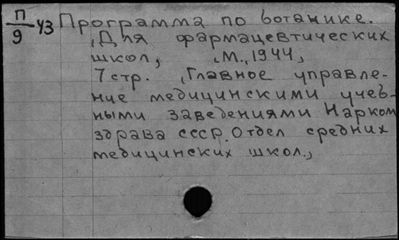 П/9 43 Программа по ботанике.
/Для фармацевтических
школ/, /М., 1944/,
7 стр. /Главное управле-
ние медицинскими учеб-
ными заведениями Нарком
здрава СССР. Отдел средних
медицинских школ./